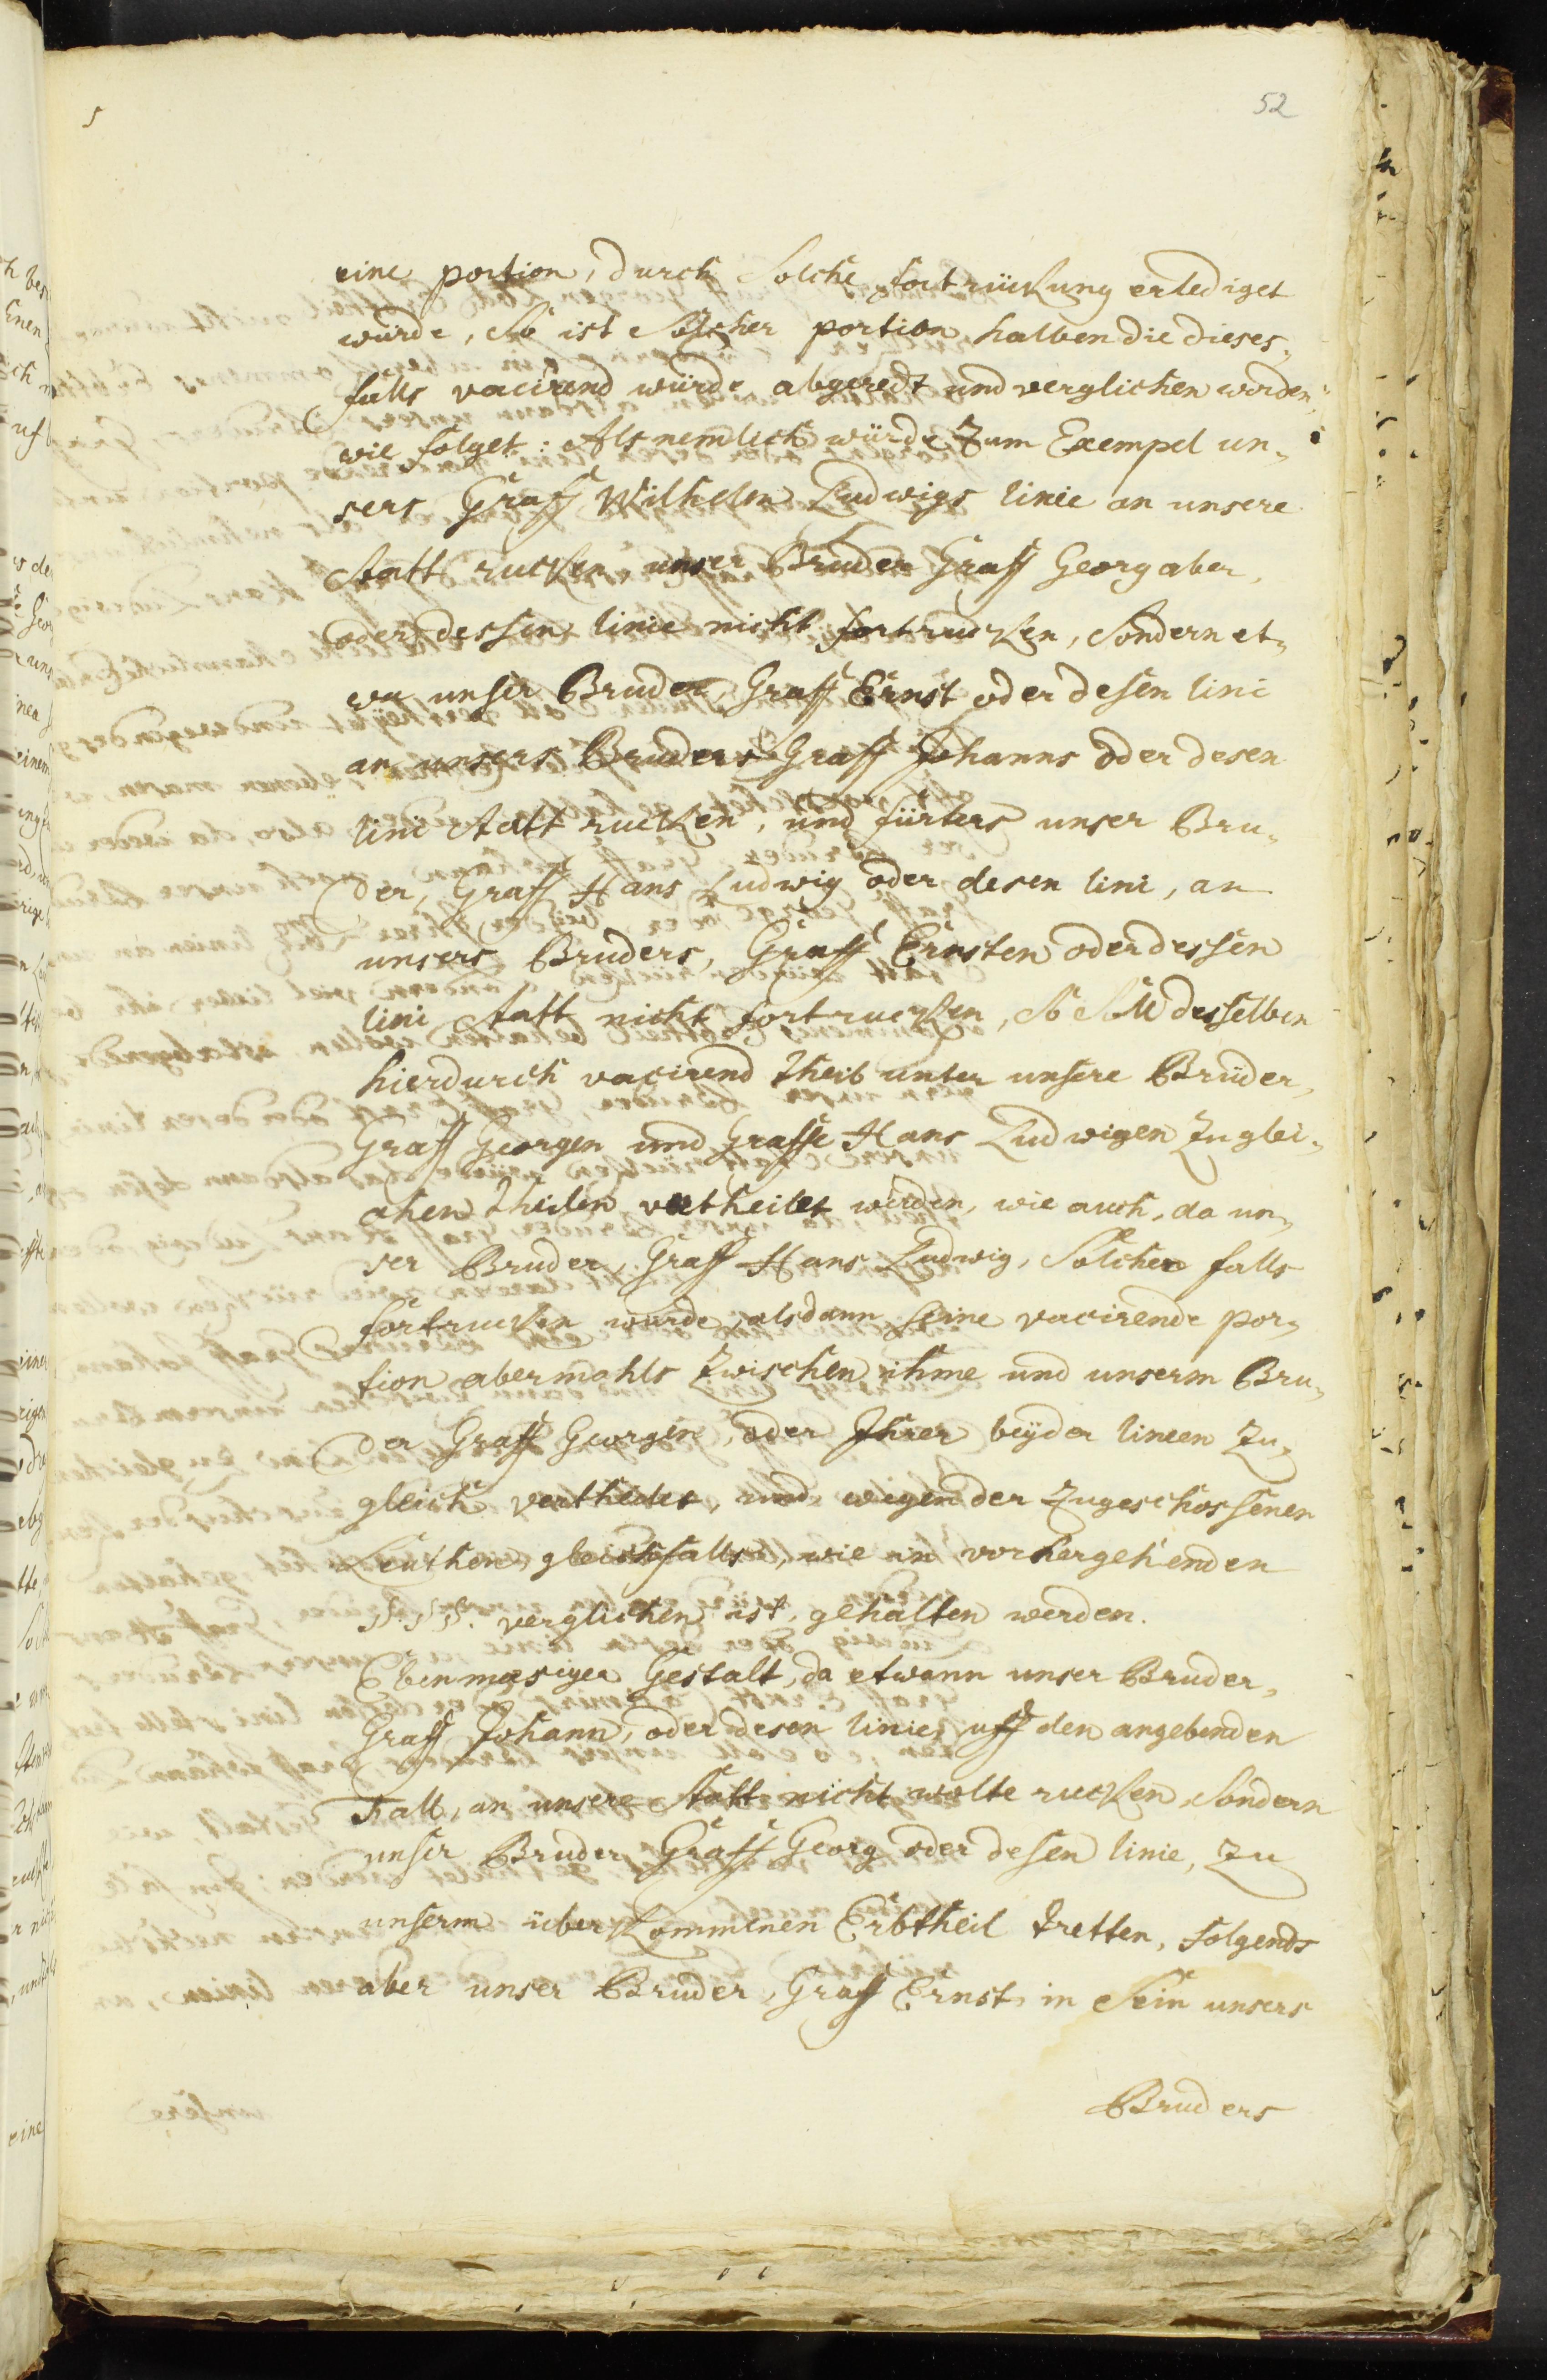 52
eine portion, durch Solche fortrückung erlediget
würde, So ist Solcher portion halben die dieses¬
falls vacirend würde abgeredt und verglichen worden,
wie folget: Als nemlich würde Zum Exempel un¬
sers Graff Wilhelm Ludwigs linie an unsere
Statt rucken unser Bruder Graff Georg aber,
oder dessen linie nicht fortrucken, Sondern et¬
wa unser Bruder, Graff Ernst oder desen lini
an unsers Bruders Graff Johanns oder desen
lini Statt rucken, und fürters unser Bru¬
der, Graff Hans Ludwig oder desen lini, an
unsers Bruders, Graff Ernsten oder dessen
lini Statt nicht fortrucken, So Soll desselben
hierdurch vacirend theil unter unsere Brüder,
Graff Georgen und Graffe Hans Ludwigen Zu glei¬
chen theilen vertheilet werden, wie auch, da un¬
ser Bruder, Graff Hans Ludwig, Solchen falls
fortrucken würde, alsdann Seine vacirende por¬
tion abermahls Zwischen ihme und unserm Bru¬
der Graff Georgen, oder Ihrer beyder lineen Zu¬
gleich vertheilet, und wegen der Zugeschossenen
Leuthen, gleichfalls, wie in vorhergehenden
§§§. verglichen ist, gehalten werden.
Ebenmasiger Gestalt, da etwann unser Bruder,
Graff Johann, oder desen linie, uff den angebenden
Fall, an unsere Statt nicht wolte rucken, Sondern
unser Bruder Graff Georg oder desen linie, Zu
unserm überkommenen Erbtheil tretten, folgends
aber unser Bruder, Graff Ernst, in Sein unsers
Bruders